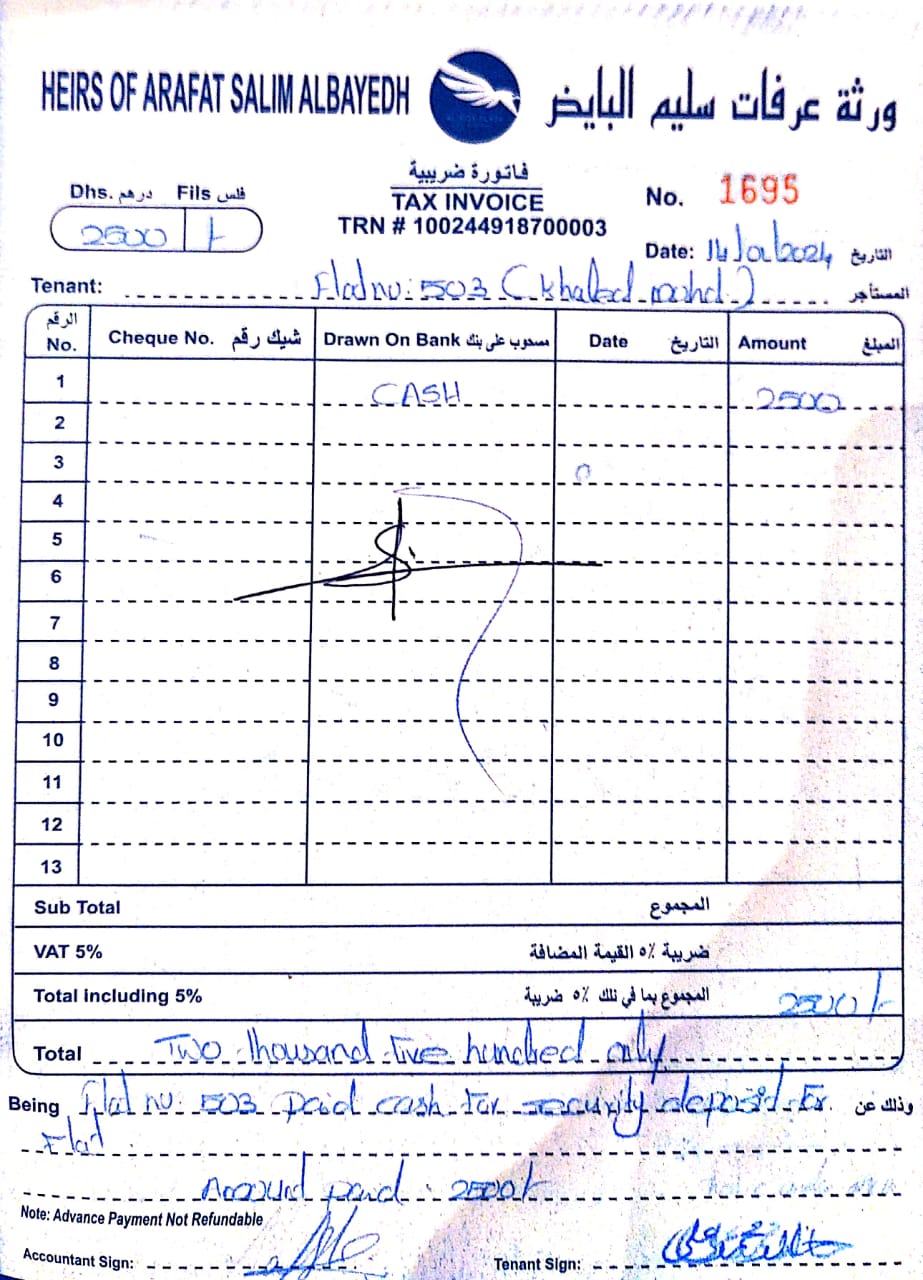 HEIRS OF ARAFAT SALIM ALBAYEDH
ورثة عرفات سليم البايض
فاتورة ضريبية
TAX INVOICE
TRN # 100244918700003
Dhs. درهم Fils فلس
2500 /-
No. 1695
Date: 14/01/2024 التاريخ
Tenant: Flat no: 503 (Khaled mohd) المستأجر
الرقم No. Cheque No. شيك رقم Drawn On Bank مسحوب على بنك Date التاريخ Amount المبلغ
1 CASH 2500
2
3
4
5
6
7
8
9
10
11
12
13
Sub Total المجموع
VAT 5% ضريبة ٥٪ القيمة المضافة
Total including 5% المجموع بما في ذلك ٥٪ ضريبة 2500/-
Total Two thousand five hundred only
Being Flat no: 503 paid cash for security deposit for وذلك عن
Flat
Amount paid: 2500/-
Note: Advance Payment Not Refundable
Accountant Sign:
Tenant Sign: